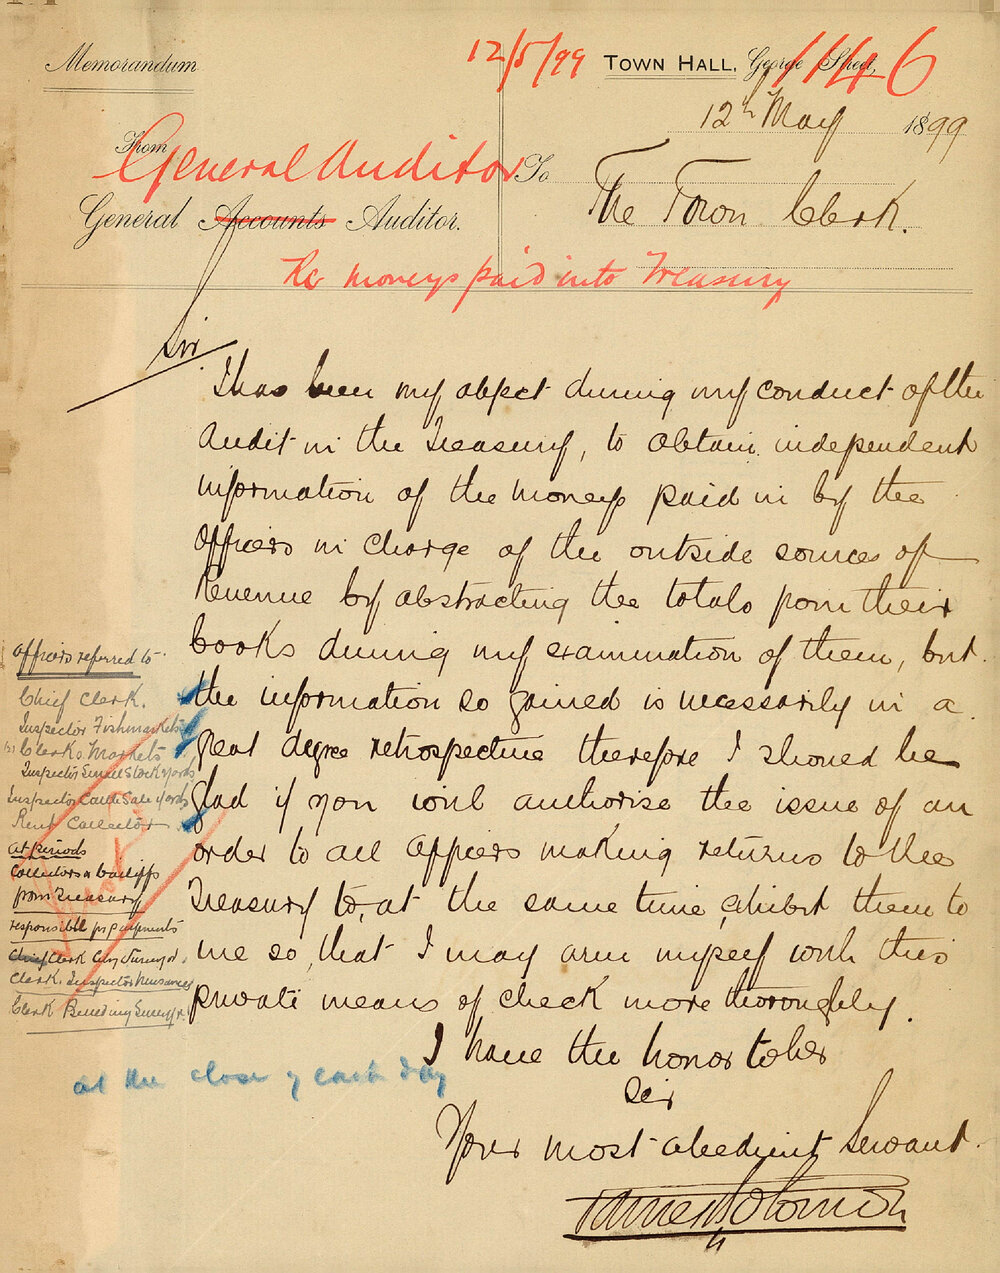 Memorandum
12/5/99
TOWN HALL, George Street,
1146
12th May 1899
From
General Auditor
To
The Town Clerk.
General Accounts Auditor.
Re moneys paid into Treasury
Sir
It has been my object during my conduct of the
Audit in the Treasury, to obtain independent
information of the moneys paid in by the
Officers in charge of the outside sources of
Revenue by abstracting the totals from their
books during my examination of them, but
the information so gained is necessarily in a
great degree retrospective therefore I should be
glad if you will authorise the issue of an
order to all officers making returns to the
Treasury to, at the same time, exhibit them to
me so, that I may arm myself with this
private means of check more thoroughly.
I have the honor to be
Sir
Your most obedient Servant
James Solomon
Officers referred to
Chief Clerk.
Inspector Fishmarkets
Clerks Markets
Inspector Small Stock Yards
Inspector Cattle Sale Yards
Rent Collector
at periods
Collectors & bailiffs
from Treasury
responsible for payments
Chief Clerk City Surveyor
Clerk, Inspector Nuisances
Clerk Building Surveyor
at the close of each day